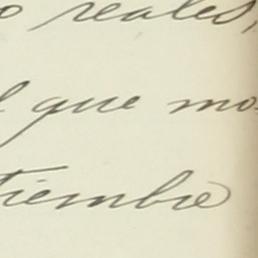 o reales,
l que mo
tiembre